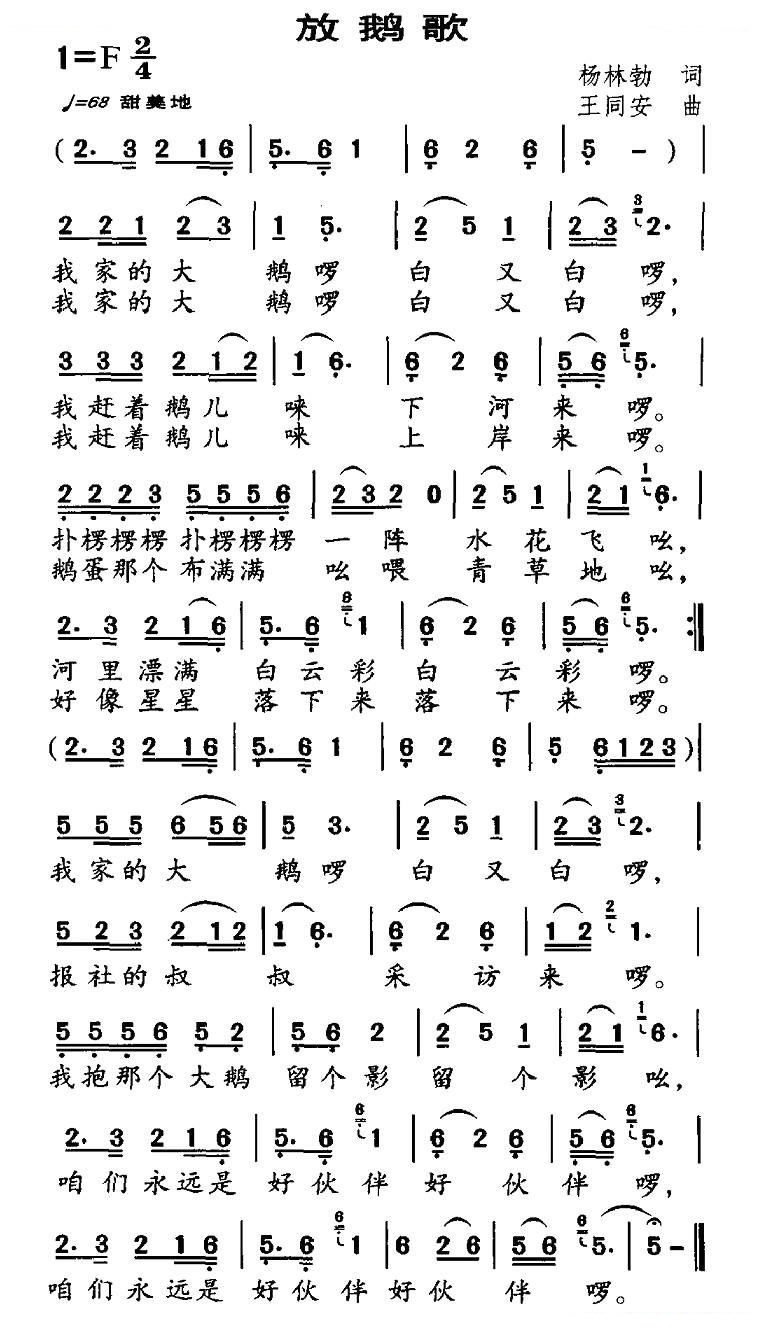 放鹅歌
1=F 2/4
杨林勃 词
♩=68 甜美地
王同安 曲
( 2. 3 2 1 6 | 5. 6 1 | 6 2 6 | 5 - ) |
2 2 1 2 3 | 1 5. | 2 5 1 | 2 3 3 2. |
我家的大 鹅啰 白又白啰,
我家的大 鹅啰 白又白啰,
3 3 3 2 1 2 | 1 6. | 6 2 6 | 5 6 6 5. |
我赶着鹅儿 唻 下河来啰。
我赶着鹅儿 唻 上岸来啰。
2 2 2 3 5 5 5 6 | 2 3 2 0 | 2 5 1 | 2 1 1 6. |
扑楞楞楞 扑楞楞楞 一阵 水花飞吆,
鹅蛋那个布满满 吆喂 青草地吆,
2. 3 2 1 6 | 5. 6 6 1 | 6 2 6 | 5 6 6 5. :|
河里漂满 白云彩白云彩啰。
好像星星 落下来落下来啰。
( 2. 3 2 1 6 | 5. 6 1 | 6 2 6 | 5 6 1 2 3 ) |
5 5 5 6 5 6 | 5 3. | 2 5 1 | 2 3 3 2. |
我家的大 鹅啰 白又白啰,
5 2 3 2 1 2 | 1 6. | 6 2 6 | 1 2 2 1. |
报社的叔 叔 采访来啰。
5 5 5 6 5 2 | 5 6 2 | 2 5 1 | 2 1 1 6. |
我抱那个大鹅 留个影留个影吆,
2. 3 2 1 6 | 5. 6 6 1 | 6 2 6 | 5 6 6 5. |
咱们永远是 好伙伴好伙伴啰,
2. 3 2 1 6 | 5. 6 6 1 | 6 2 6 | 5 6 6 5. | 5 - ‖
咱们永远是 好伙伴好伙伴啰。